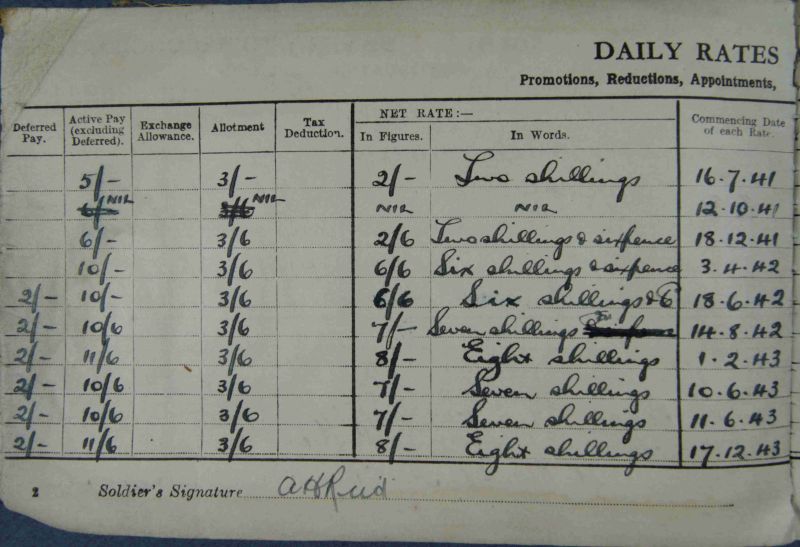 DAILY RATES
Promotions, Reductions, Appointments,
Deferred Pay. Active Pay (excluding Deferred). Exchange Allowance. Allotment Tax Deduction. NET RATE:— In Figures. In Words. Commencing Date of each Rate.
5/- 3/- 2/- Two shillings 16.7.41
6/- NIL 3/6 NIL NIL NIL 12.10.41
6/- 3/6 2/6 Two shillings & sixpence 18.12.41
10/- 3/6 6/6 Six shillings & sixpence 3.4.42
2/- 10/- 3/6 6/6 Six shillings & 6 18.6.42
2/- 10/6 3/6 7/- Seven shillings 14.8.42
2/- 11/6 3/6 8/- Eight shillings 1.2.43
2/- 10/6 3/6 7/- Seven shillings 10.6.43
2/- 10/6 3/6 7/- Seven shillings 11.6.43
2/- 11/6 3/6 8/- Eight shillings 17.12.43
2 Soldier's Signature AHReid